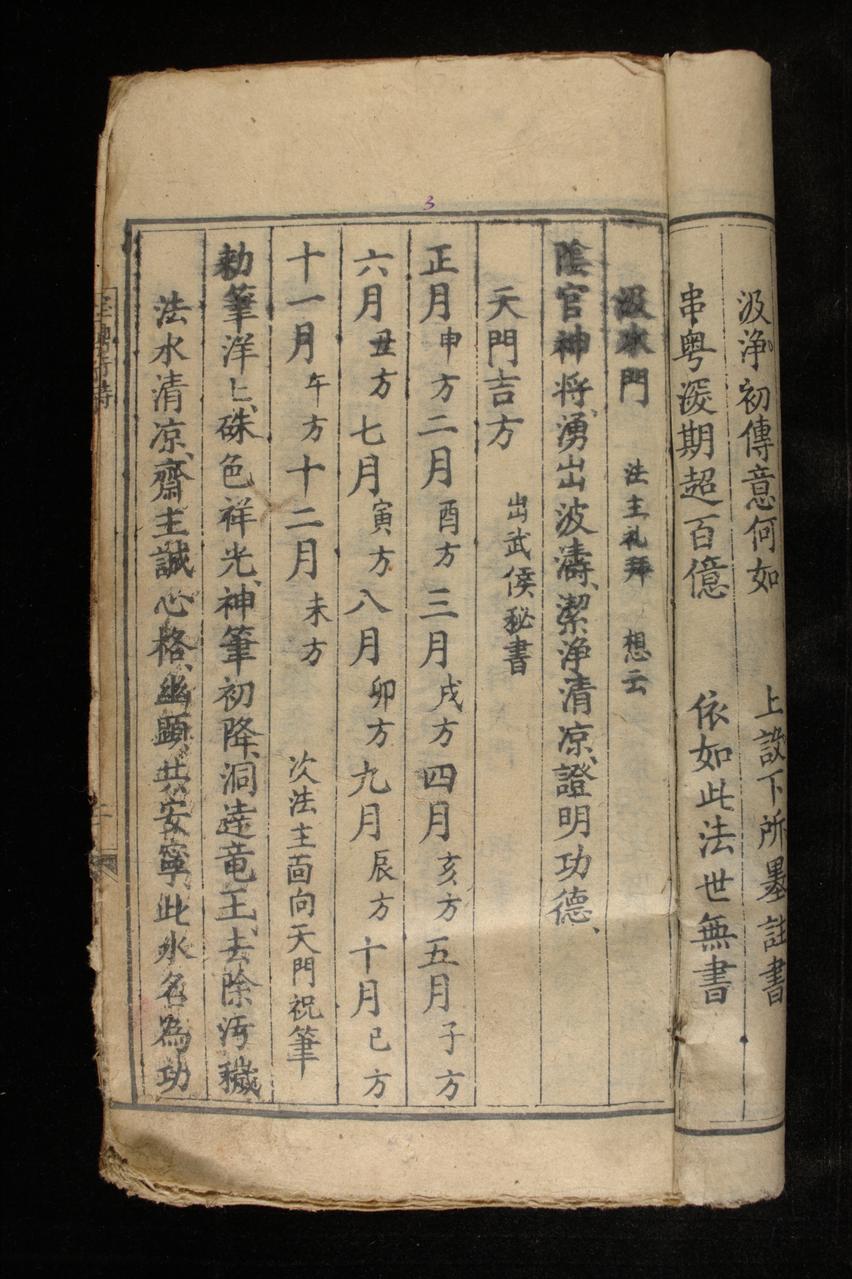 汲淨初傳意何如 上設下所墨註書
串粤湲期超百億 依如此法世無書
汲水門 法主礼拜 想云
陰官神将湧出波濤、潔淨清凉、證明功德、
天門吉方 出武侯秘書
正月申方二月酉方三月戌方四月亥方五月子方
六月丑方七月寅方八月卯方九月辰方十月巳方
十一月午方十二月未方 次法主面向天門祝筆
勅筆洋上、硃色祥光、神筆初降、洞達竜王、去除汚穢
法水清凉、齋主誠心格、幽顕共安寧此水名為功
3